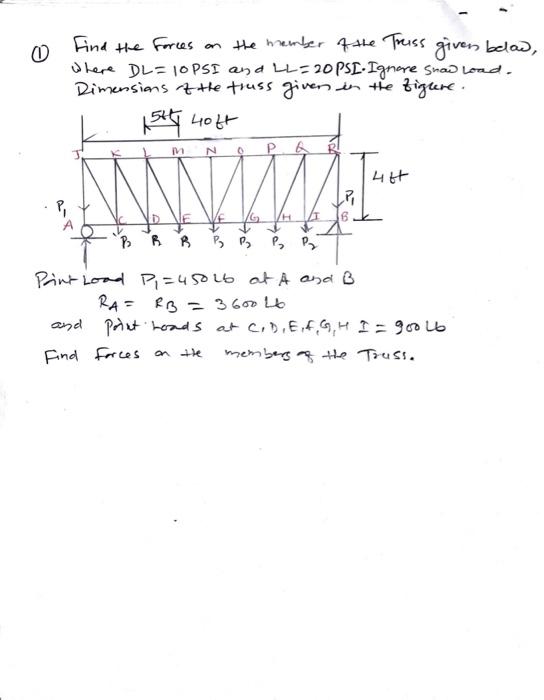 ① Find the Forces on the member of the Truss given below,
where DL = 10 PSI and LL = 20 PSI. Ignore Snow Load.
Dimensions of the truss given in the figure.
5ft 40ft
J K L M N O P Q R
4ft
P₁ P₁
A C D E F G H I B
P₂ P₂ P₂ P₂ P₂ P₂ P₂
Point Load P₁ = 450 Lb at A and B
RA = RB = 3600 Lb
and Point Loads at C, D, E, F, G, H I = 900 Lb
Find forces on the members of the Truss.